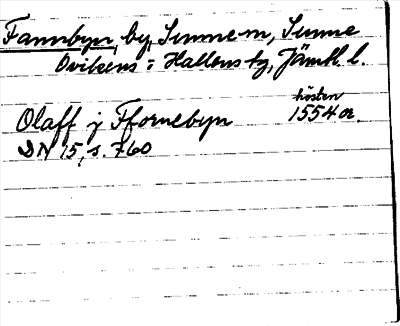 Fannbyn, by, Sunne sn, Sunne
Ovikens o Hallens tg, Jämtl. l.
hösten
Olaff j Ffornebyn 1554 or.
DN 15, s. 760